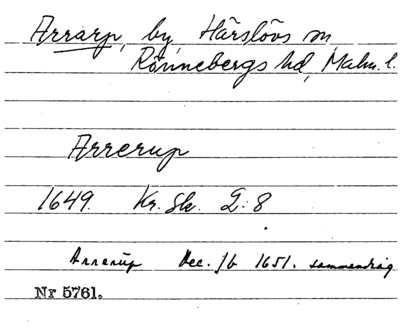 Arrarp, by, Härslövs sn
Rönnebergs hd, Malm. l.
Arrerup
1649. Kr. Sk. L: 8
Arrerup Dec. Jb 1651. sammendrag
Nr 5761.